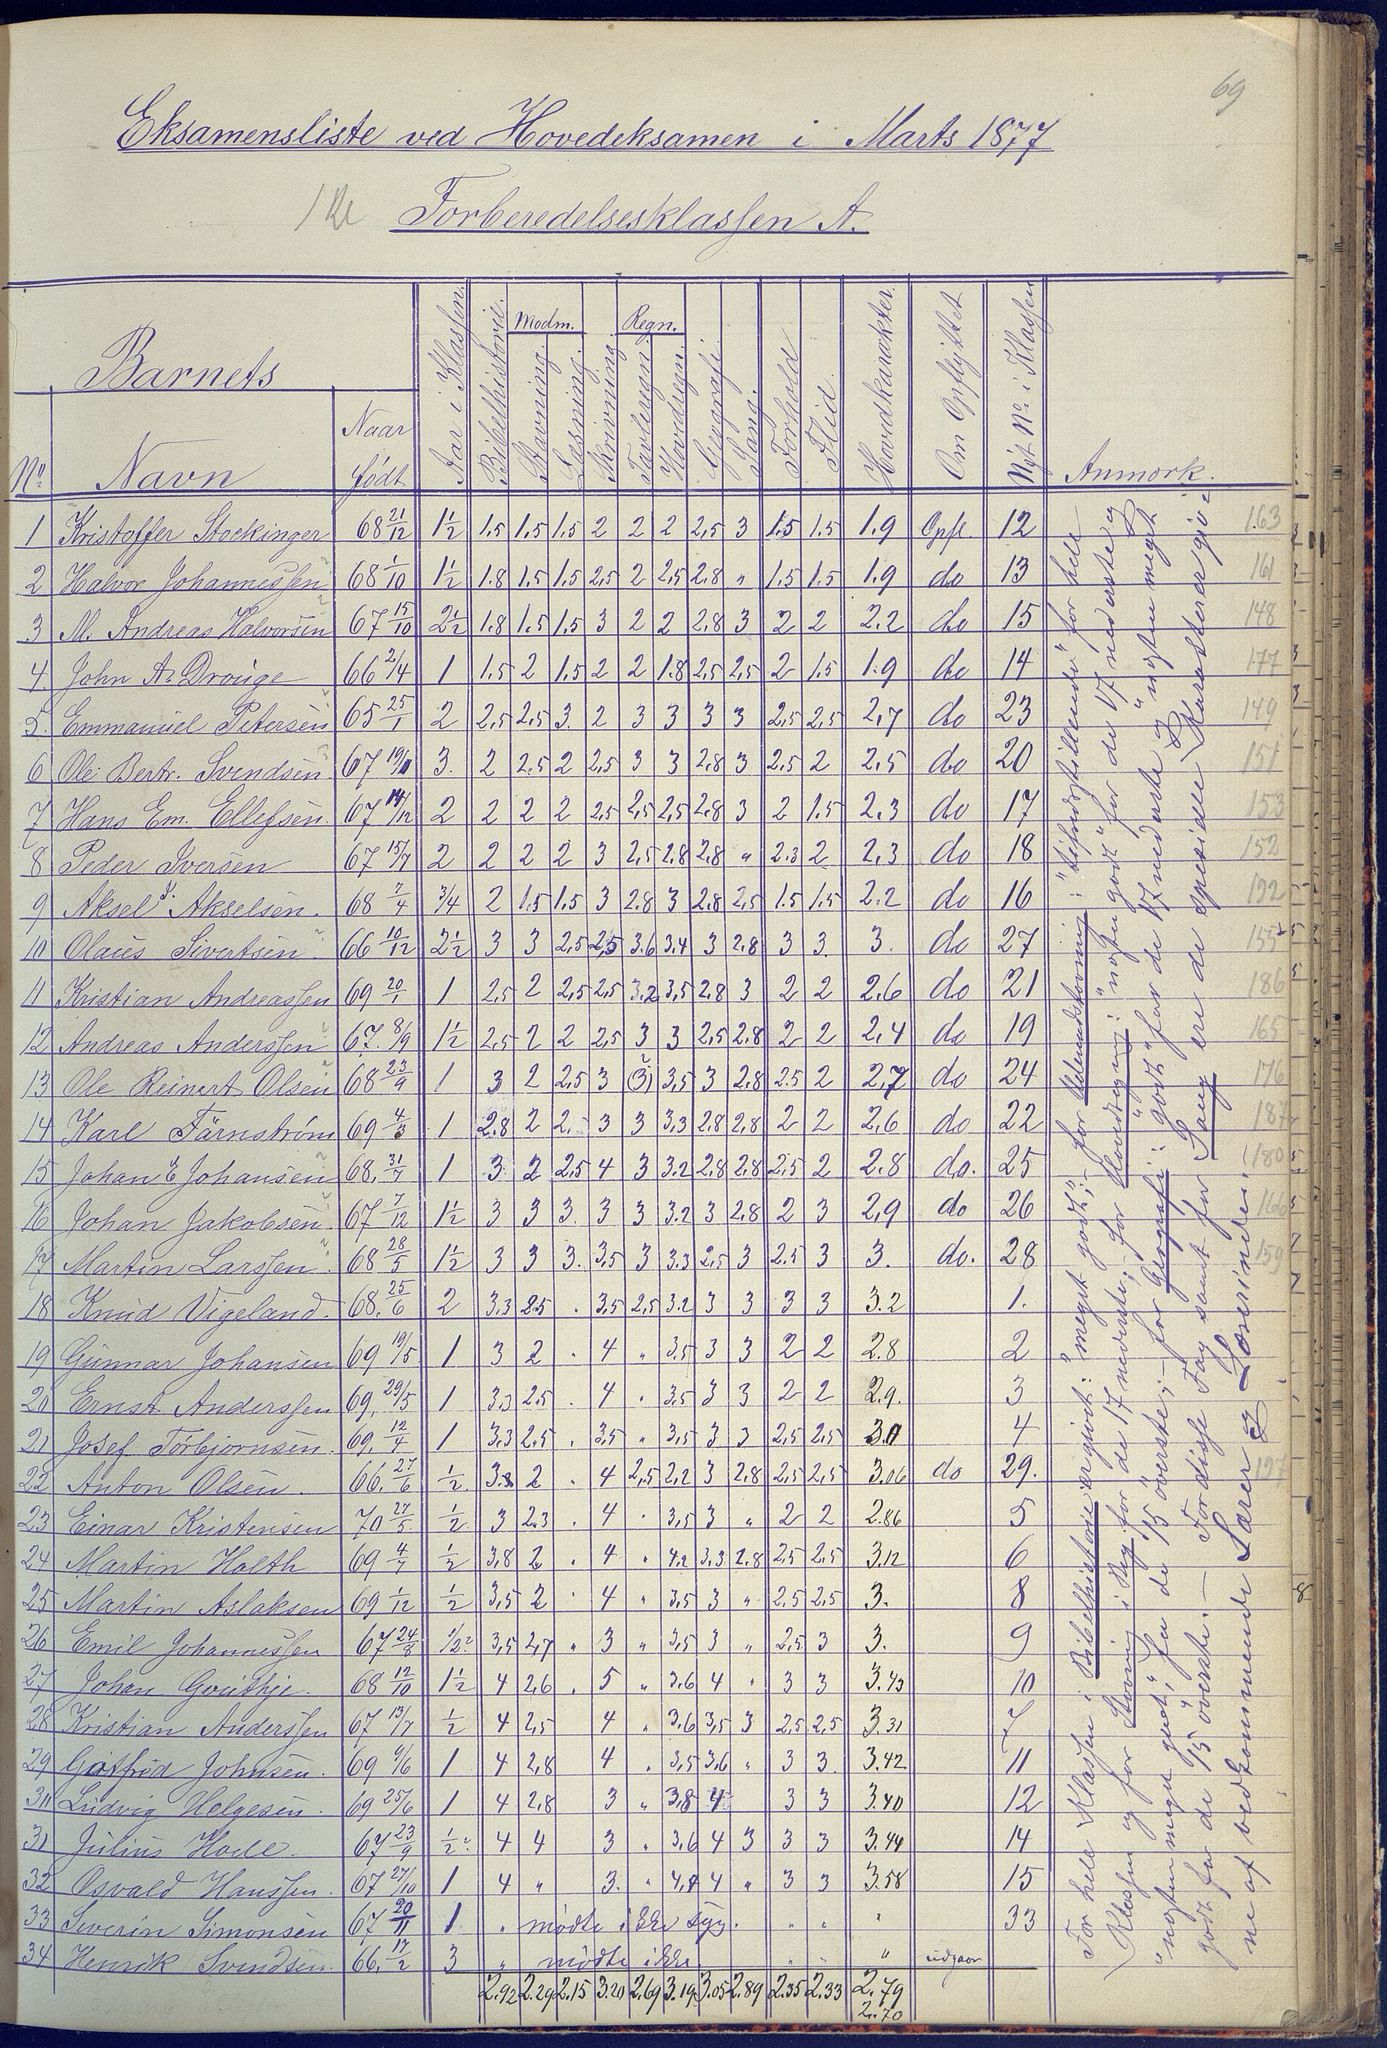 69
Eksamensliste ved Hovedeksamen i Marts 1877
1 Kl Forberedelsesklassen A.
Barnets
No Navn Naar født Aar i Klassen. Bibelhistorie. Modm. Stavning. Læsning. Skrivning. Regn. Tavleregn. Hovedregn. Geografi. Sang. Forhold Flid. Hovedkarakter. Om Opflyttet Nyt No i Klassen Anmærk.
1 Kristoffer Stockinger 68 21/12 1½ 1.5 1.5 1.5 2 2 2 2,5 3 1.5 1.5 1.9 Opfl. 12 163
2 Halvor Johannessen 68 1/10 1½ 1.8 1.5 1.5 2,5 2 2,5 2.8 " 1.5 1.5 1.9 do 13 161
3 M. Andreas Halvorsen 67 15/10 2½ 1.8 1.5 1.5 3 2 2 2.8 3 2 2 2.2 do 15 148
4. John A. Drouge 66 2/4 1 1.5 2 1.5 2 2 1.8 2,5 2,5 2 1.5 1.9 do 14 177
5. Emmanuel Petersen 65 25/1 2 2,5 2,5 3. 2 3 3 3 3 2,5 2,5 2,7 do 23 149
6 Ole Bertr. Svendsen 67 19/11 3. 2 2.5 2 2,5 3 3 2.8 3 2.5 2 2,5 do 20 151
7 Hans Em. Ellefsen. 67 14/12 2 2 2 2 2,5 2,5 2,5 2.8 3 2 1.5 2.3 do 17 153
8 Peder Iversen 67 15/7 2 2 2 2 3 2,5 2.8 2.8 " 2.3 2 2,3 do 18 152
9 Aksel J. Akselsen. 68 7/4 3/4 2 1.5 1.5 3 2.8 3 2.8 2,5 1.5 1.5 2.2 do 16 192
10 Olaus Sivertsen 66 10/12 2½ 3 3 2,5 2,5 3.6 3.4 3 2.8 3 3. 3. do 27 155
11 Kristian Andreassen 69 20/1 1 2,5 2 2,5 2,5 3,2 3,5 2.8 3 2 2 2.6 do 21 186
12 Andreas Anderssen 67. 8/9 1½ 2,5 2 2 2,5 3 3 2,5 2.8 2 2 2,4 do 19 165
13 Ole Reinert Olsen 68 23/9 1 3 2 2,5 3 (3) 3,5 3 2.8 2.5 2 2,7 do 24 176
14 Karl Färnström 69 4/3 1 2.8 2 2. 3 3 3,3 2.8 2,8 2 2 2,6 do 22 187
15 Johan E. Johansen 68. 31/7 1 3 2 2,5 4 3 3.2 2.8 2.8 2,5 2 2.8 do. 25 180
16 Johan Jakobsen 67 7/12 1½ 3 3 3. 3 3 3.2 3 2.8 2 3 2,9 do 26 166
17 Martin Larssen 68 28/5 1½ 3 3 3. 3,5 3 3.3 2,5 3 2.5 3 3. do. 28 159
18 Knud Vigeland. 68. 25/6 2 3,3 2.5 . 3,5 2,5 3.2 3 3 3 3 3.2 1.
19 Gunnar Johansen 69 19/5 1 3 2 . 4 " 3,5 3 3 2 2 2.8 2
20 Ernst Anderssen 69. 29/5 1 3,3 2,5 . 4 . 3,5 3 3 2 2 2.9. 3
21 Josef Torbjørnsen. 69. 12/4 1 3,3 2,5 . 3,5 " 3,5 3 3 2,5 2,5 3.0 4
22 Anton Olsen. 66. 27/6 ½ 3.8 2 . 4 2,5 2,2 3 2.8 2,5 2,5 3.06 do 29. 197
23 Einar Kristensen 70 27/5. ½ 3 2.3 . 4 . 3,5 3 " 2 2 2.86 5
24 Martin Holth 69 4/7 ½ 3,8 2 . 4 " 4.2 3,3 2.8 2,5 2,5 3.12 6
25 Martin Aslaksen 69 1/12 ½ 3,5 2 . 4 " 3,5 3 " 2.5 2,5 3. 8
26 Emil Johannessen 67 24/8 ½ 3,5 2,7 " 3 " 3,5 3 " 2.5 3 3. 9
27 Johan Gruthje. 68 12/10 1½ 4 2,6 . 5 " 3.6 4 " 3 3 3.43 10
28 Kristian Anderssen 67 13/7 ½ 4 2,5 4 . 3,6 3,5 3 2,5 2,5 3.31 7
29 Gotfrid Johnsen. 69 9/6 1 4 2,8 4 . 3,5 3,6 " 3 3. 3.42 11
30 Ludvig Helgesen. 69 25/6 1 4 2,8 3 " 3,8 4 3 3 3.40 12
31 Julius Hode. 67 23/9 ½ 4 4 3 . 3.6 4 3 3 3 3.44 14
32 Osvald Hanssen. 67 27/10 1 4 " 3. " 4,4 4 " 3 3 3.58 15
33 Severin Simonsen 67 20/11 1 " mødte ikke syg. " " " 33
34 Henrik Svendsen. 66. 17/2 3 " mødte ikke " " " udgaar
2.92 2.29 2.15 3.20 2.69 3.19 3.05 2.89 2.35 2.33 2.79
2.70
For hele Klassen i Bibelhistorie avgivet: "meget godt"; – for Udenadstavning: "tilfredsstillende" for hele
Klassen og for Stavning i Bog for de 17 nederste; – for Hovedregning: "nogen godt" for de 17 nederste og
"nogen meget godt", for de 15 øverste; – for Geografi: "godt" for de 17 nederste og "nogen meget
godt" for de 15 øverste. – For disse Fag samt for Sang ere de specielle Karakterer giv=
ne af vedkommende Lærer og Lærerinder.